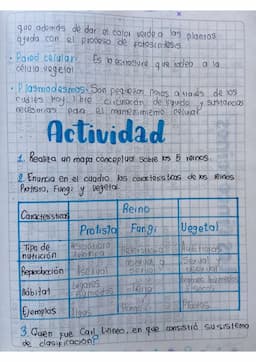 que además de dar el color verde a las plantas
ayuda con el proceso de fotosíntesis.
• Pared celular: Es la estructura que rodea a la
célula vegetal
• Plasmodesmos: Son pequeños poros a través de los
cuales hay libre circulación de líquido y sustancias
necesarias para el mantenimiento celular
Actividad
1. Realiza un mapa conceptual sobre los 5 reinos.
2. Enuncia en el cuadro las características de los reinos
Protista, Fungi y vegetal
Características Reino
Protista Fungi Vegetal
Tipo de nutrición
Reproducción Asexual
Hábitat
Ejemplos
3. Quién fue Carl Linneo, en que consistió su sistema
de clasificación?